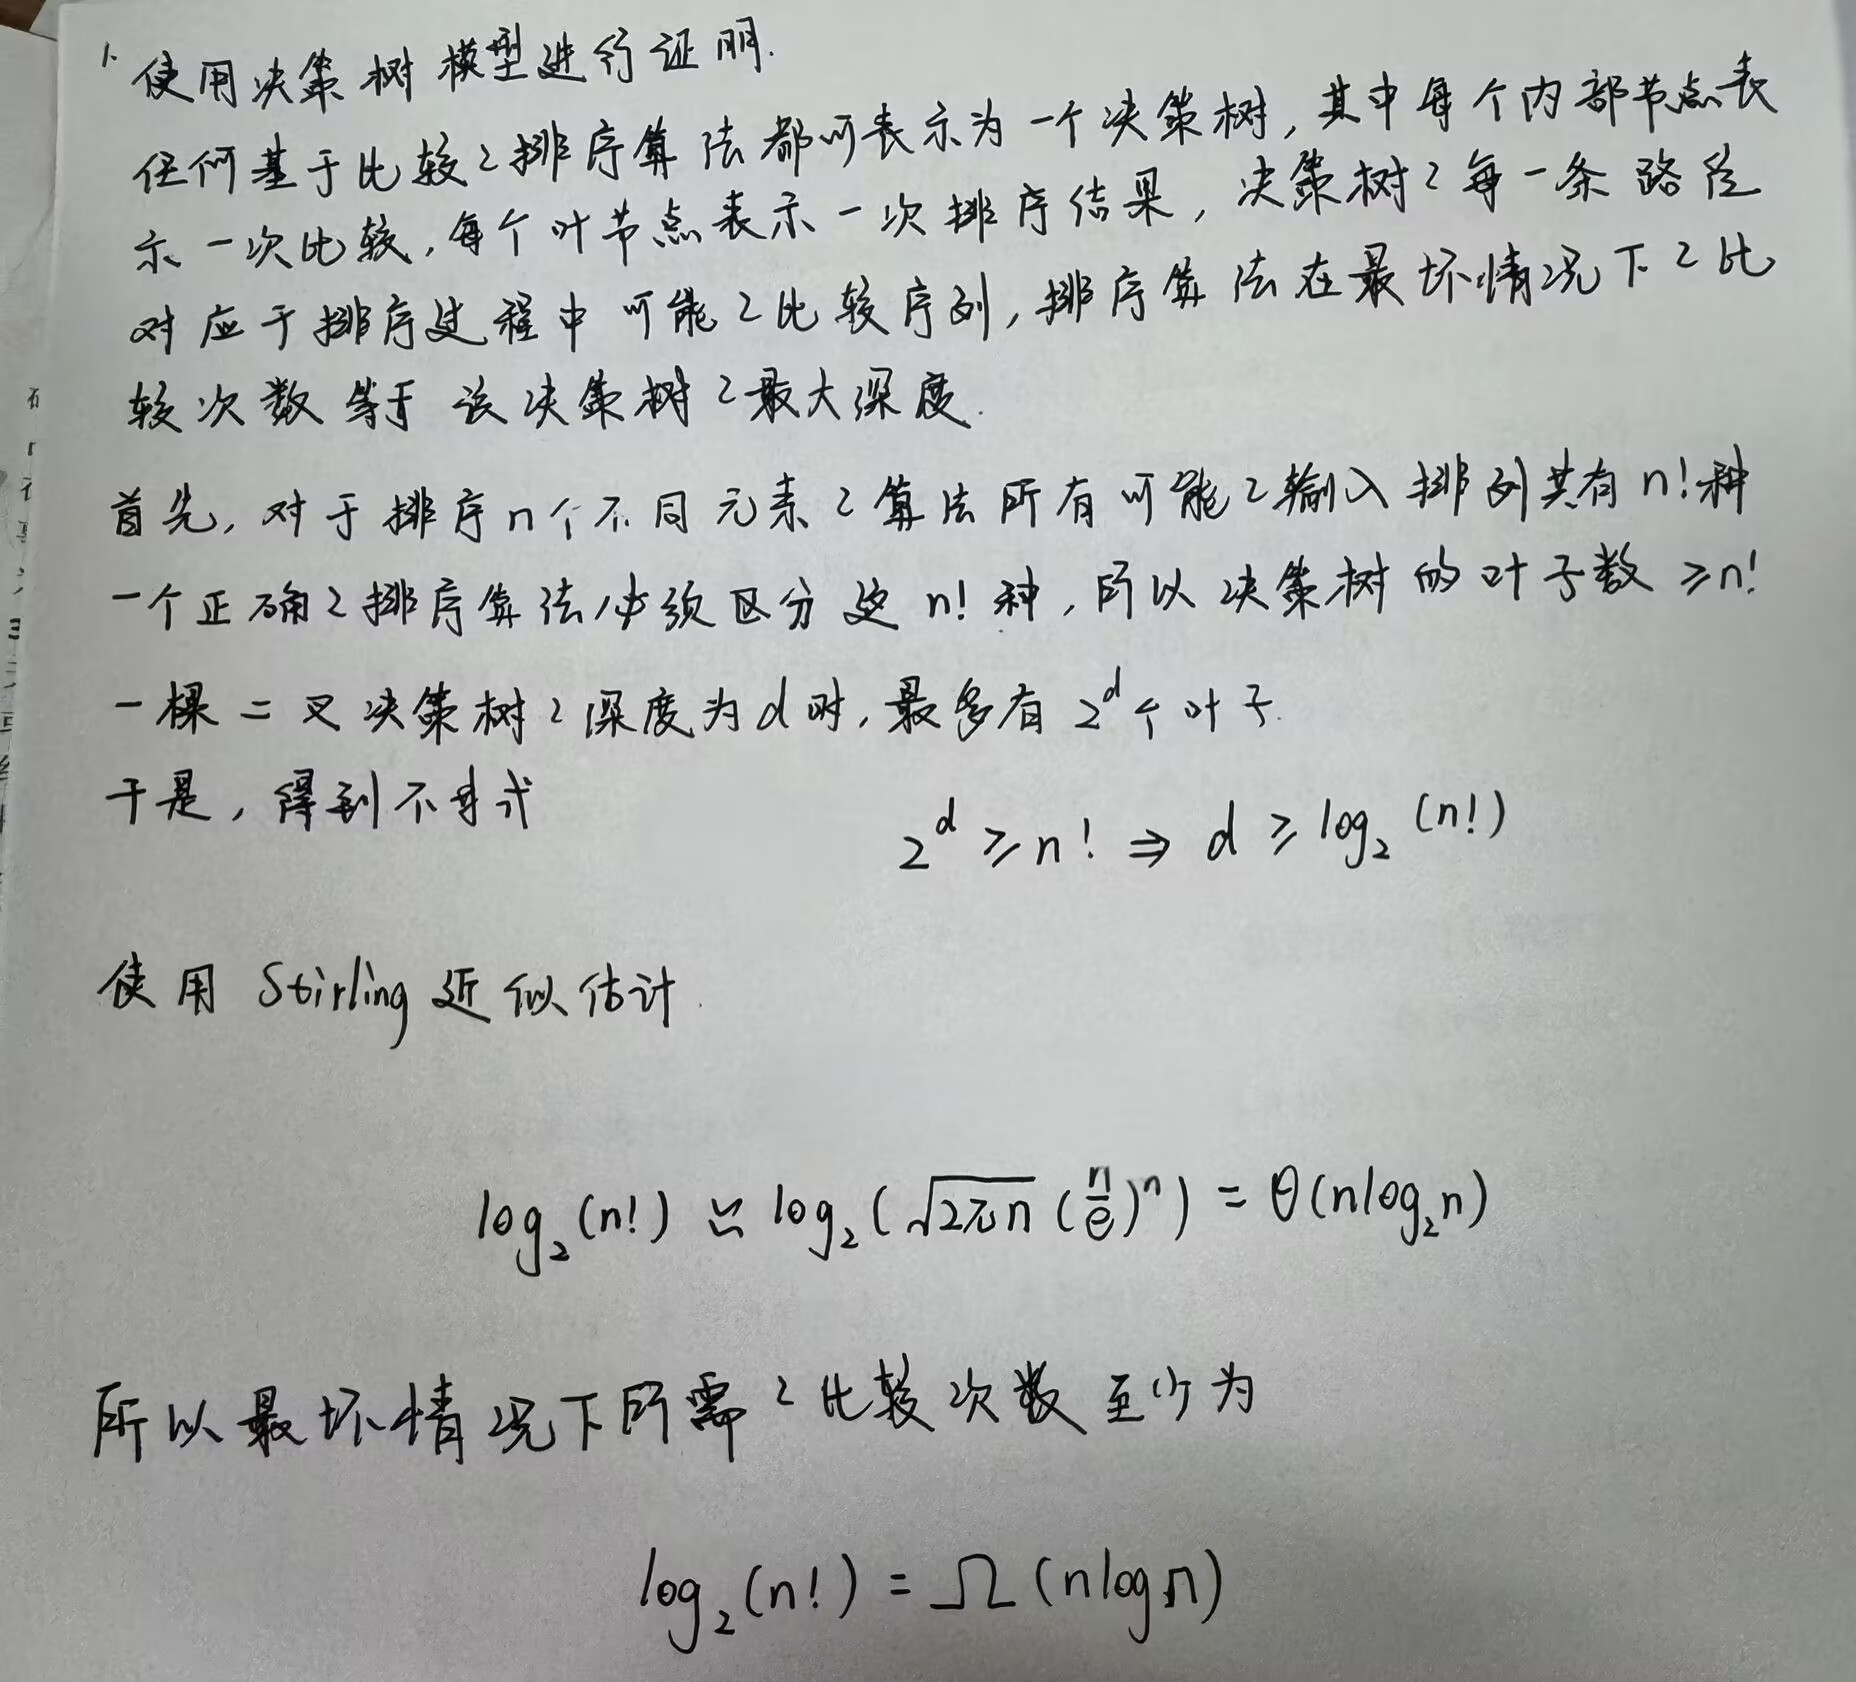 1. 使用决策树模型进行证明.
任何基于比较的排序算法都可表示为一个决策树, 其中每个内部节点表
示一次比较, 每个叶节点表示一次排序结果, 决策树的每一条路径
对应于排序过程中可能的比较序列, 排序算法在最坏情况下的比
较次数等于该决策树的最大深度.
首先, 对于排序n个不同元素的算法所有可能的输入排列共有n!种
一个正确的排序算法必须区分这n!种, 所以决策树的叶子数≥n!
一棵二叉决策树的深度为d时, 最多有2^d个叶子.
于是, 得到不等式
2^d ≥ n! ⇒ d ≥ log₂(n!)
使用 Stirling 近似估计.
log₂(n!) ≃ log₂(√(2πn) (n/e)^n) = θ(nlog₂n)
所以最坏情况下所需的比较次数至少为
log₂(n!) = Ω(nlogn)